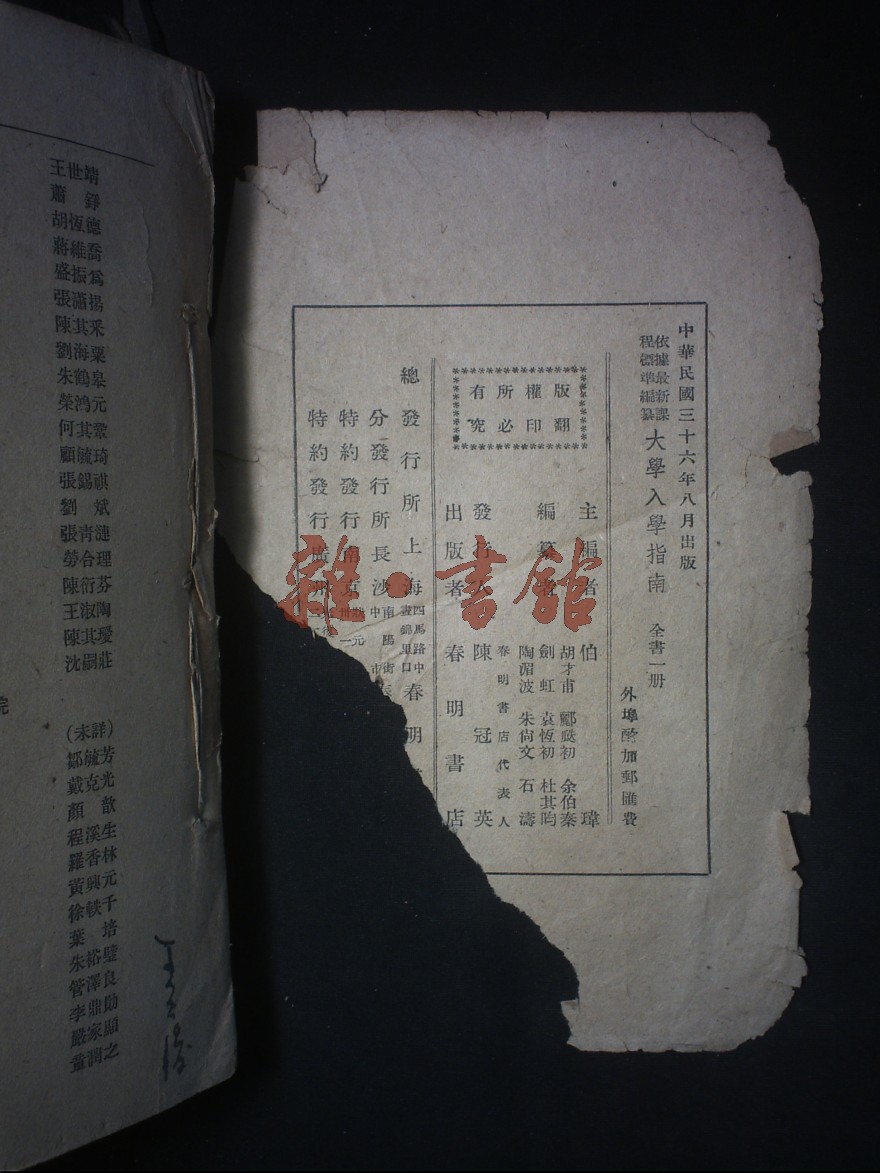 中華民國三十六年八月出版
依據最新課
程標準編纂
大學入學指南
全書一册
外埠酌加郵匯費
版權所有
翻印必究
主編者 伯 瑋
編纂者
胡才甫 酈 初 余伯秦
劍虹 袁恆初 杜其昀
陶湄波 朱尚文 石濤
春明書店代表人
發行人 陳冠英
出版者 春明書店
總發行所 上海
四馬路中
晝錦里口
春明
分發行所 長沙
南陽街
中 市
特約發行 南京
特約發行 廣州
雜·書館
王世靖
蕭錚
胡恆德
蔣維喬
盛振爲
張瀟揚
陳其采
劉海粟
朱鶴皋
榮鴻元
何其鞏
顧毓琦
張錫祺
劉斌
張靑漣
勞合理
陳衍芬
王淑陶
陳其瑗
沈嗣莊
院
(未詳)
鄒毓芳
戴克光
顏歆
程溪生
羅香林
黃興元
徐軼千
葉培
朱裕璧
管澤良
李鼎勛
嚴家顯
董潤之